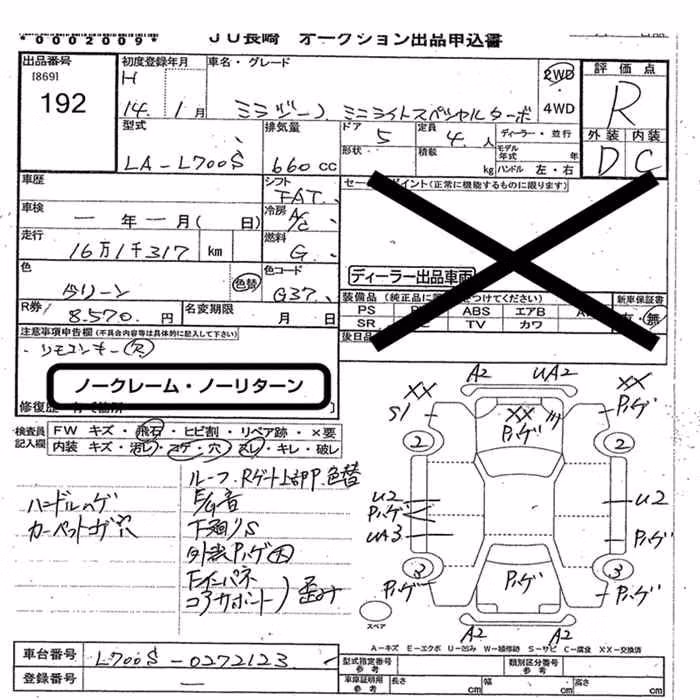 *0002009* JU長崎 オークション出品申込書
出品番号 初度登録年月 車名・グレード 評価点
[869] H 2WD
192 14.1月 ミラジーノ ミニライトスペシャルターボ 4WD R
型式 排気量 ドア 5 定員 4.人 ディーラー・並行 外装 内装
LA-L700S 660cc 形状 積載 kg モデル年式 年 ハンドル 左・右 D C
車歴 シフト セールスポイント(正常に機能するものに限ります)
FAT
車検 一年一月(日) 冷房 A/C
走行 16万1千317 km 燃料 G
色 グリーン 色替 色コード G37 ディーラー出品車両
R券 8.570.円 名変期限 月 日 装備品(純正品に つけてください) 新車保証書
PS ABS エアB 有・無
SR TV カワ
注意事項申告欄(不具合内容等は具体的に記入して下さい) 後日品
リモコンキー(欠)
ノークレーム・ノーリターン
修復歴
検査員記入欄 FW キズ・飛石・ヒビ割・リペア跡・×要
内装 キズ・汚レ・コゲ・穴・スレ・キレ・破レ
A2 UA2
XX XX XX
S1 Pハゲ Pハゲ
2 2
ルーフ.Rゲート上部P.色替
ハンドルハゲ E/g音
カーペットコゲ穴 下廻りS
外装Pハゲ大
Fインパネ
コアサポート 歪み
U2 Pハゲ UA3
U2 Pハゲ
3 3
Pハゲ Pハゲ Pハゲ
A2 A2
スペア
A-キズ E-エクボ U-凹み W-補修跡 S-サビ C-腐食 XX-交換済
車台番号 L700S-0272123 型式指定番号 参考 類別区分番号 参考
登録番号 — 車庫証明用 参考 長さ cm 幅 cm 高さ cm